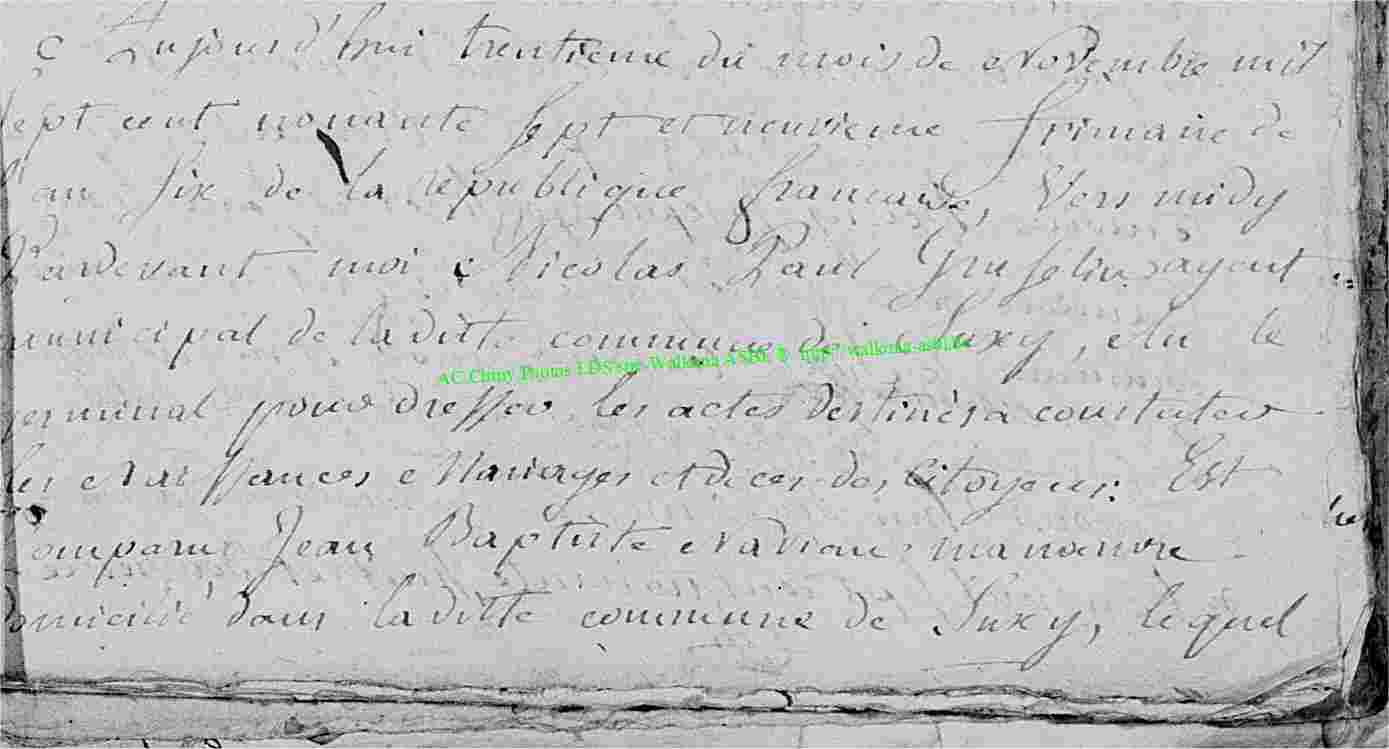 Aujourd'hui trentieme du mois de Novembre mil
sept cent nonante sept et neuvieme frimaire de
l'an six de la republique francaise, Vers midy
Pardevant moi Nicolas Paul agent
municipal de laditte commune de Suxy, elu le
germinal pour dresser les actes destinés a constater
les Naissances Mariages et deces des Citoyens: Est
comparu Jean Baptiste Naviau manoeuvre
domicilié dans laditte commune de Suxy, lequel
AC Chiny Photos LDS sur Wallonia ASBL © http://wallonia-asbl.be